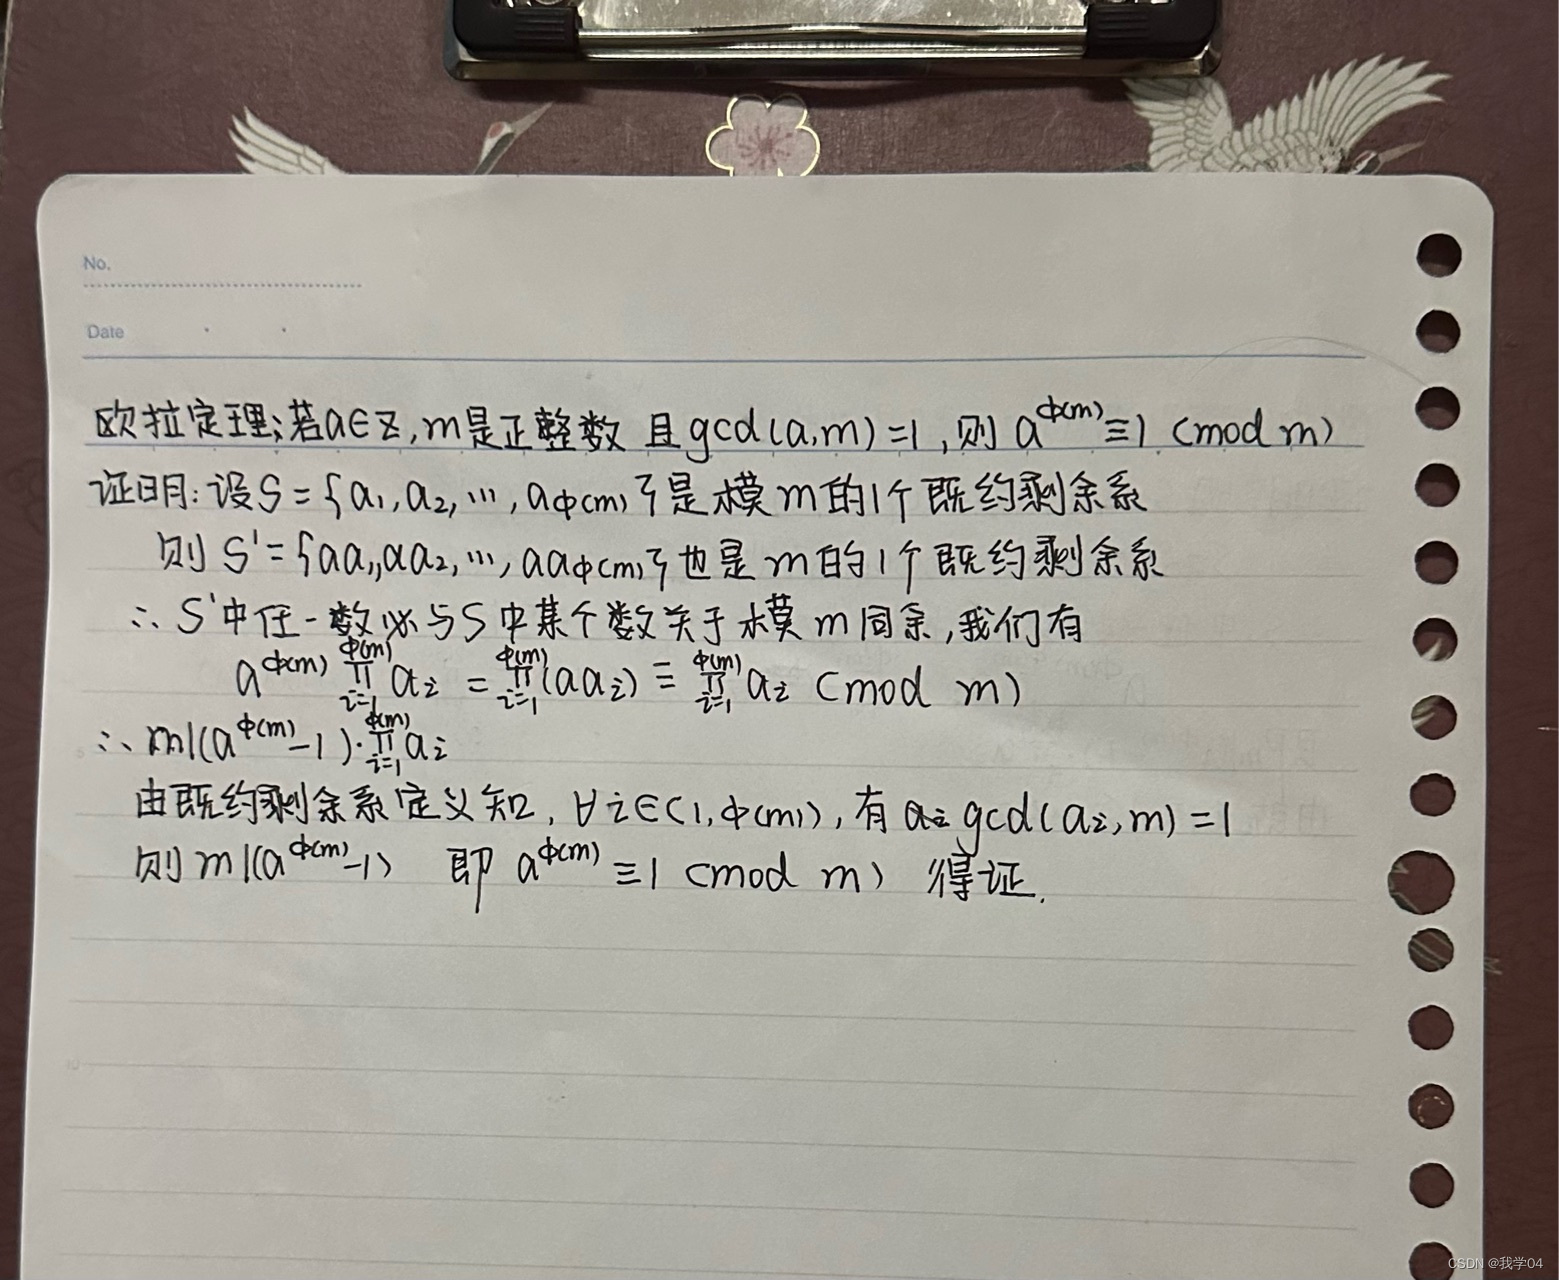 No.
Date
欧拉定理:若a∈Z,m是正整数 且gcd(a,m)=1,则 a^φ(m)≡1 (mod m)
证明:设S={a₁,a₂,…,aφ(m)}是模m的1个既约剩余系
则 S'={aa₁,aa₂,…,aaφ(m)}也是m的1个既约剩余系
∴ S'中任一数必与S中某个数关于模m同余,我们有
a^φ(m) ∏_{i=1}^{φ(m)} aᵢ = ∏_{i=1}^{φ(m)} (aaᵢ) ≡ ∏_{i=1}^{φ(m)} aᵢ (mod m)
∴ m|(a^φ(m)-1)·∏_{i=1}^{φ(m)} aᵢ
由既约剩余系定义知, ∀i∈(1,φ(m)),有 gcd(aᵢ,m)=1
则m|(a^φ(m)-1) 即 a^φ(m)≡1 (mod m) 得证.
CSDN @我学04